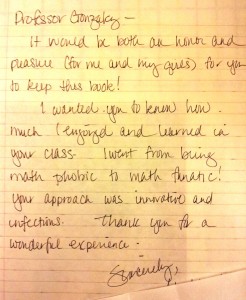 Professor Gonzalez –
It would be both an honor and
pleasure (for me and my eyes) for you
to keep this book!
I wanted you to know how
much I enjoyed and learned in
your class. I went from being
math phobic to math fanatic!
your approach was innovative and
infectious. Thank you for a
wonderful experience.
Sincerely,